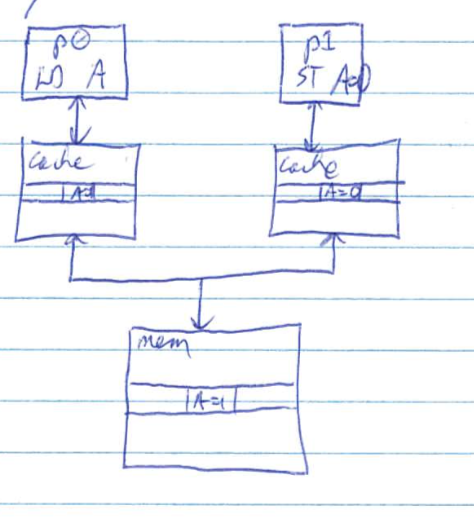 p0
LD A
p1
ST A=0
cache
A=1
cache
A=0
mem
A=1